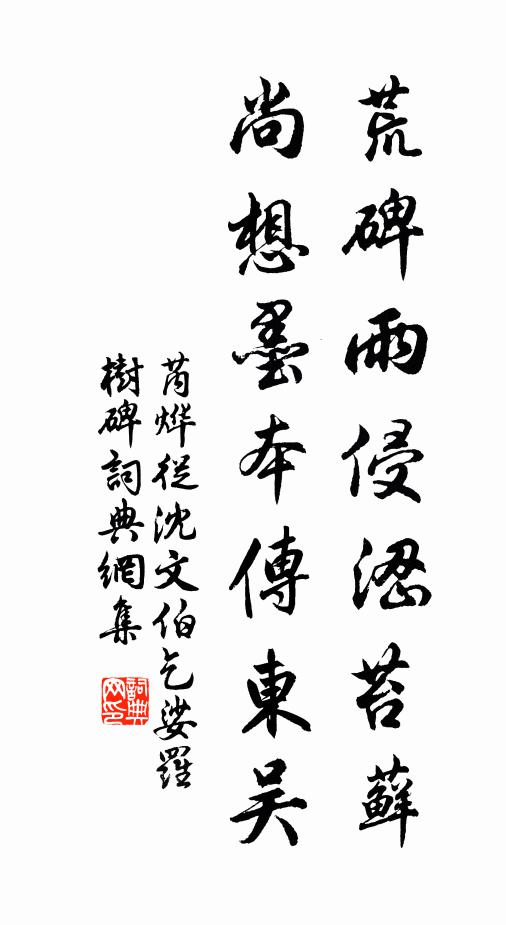 荒碑雨侵澀苔蘚
尚想墨本傳東吳
芮燁從沈文伯乞娑羅
樹碑詞典網集
詞典
网印